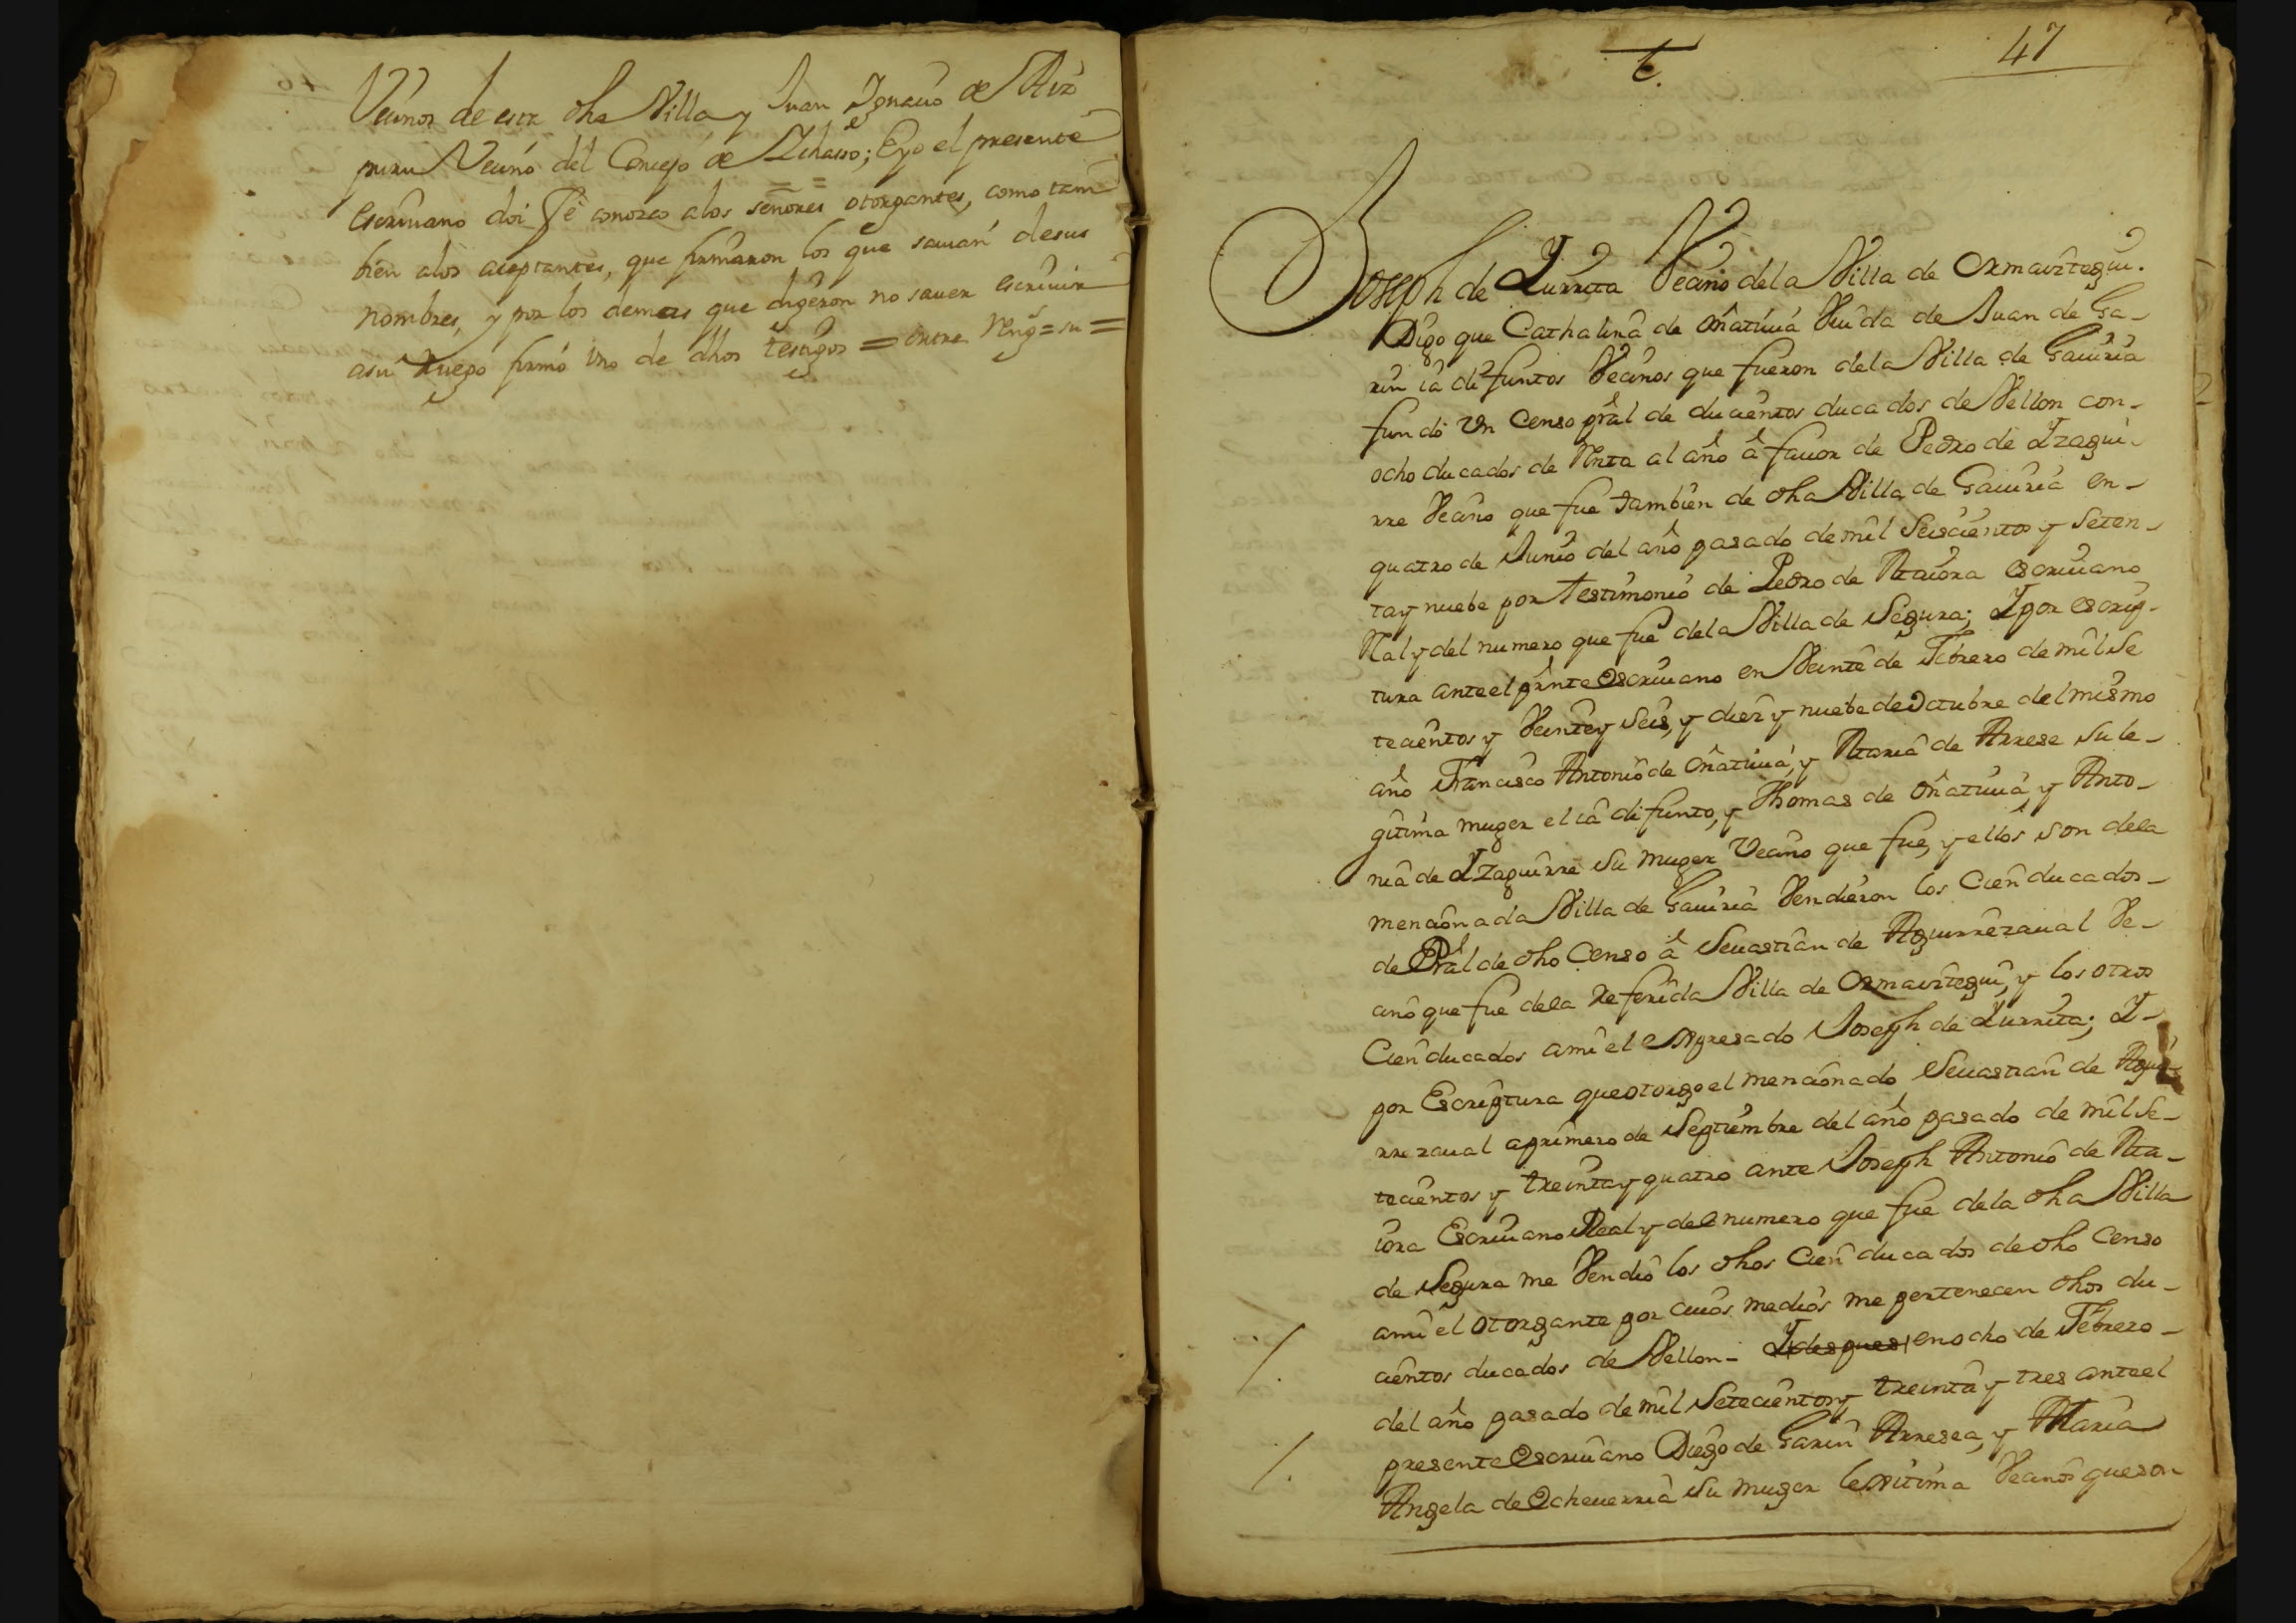 Vecinos de esta dha Villa y Juan Ignacio de Aiz
puru Vecino del Concejo de Ichasso; E yo el presente
escrivano doi fé conozco a los señores otorgantes, como tam
bien alos aceptantes, que firmaron los que savian de sus
nombres, y por los demas que digeron no saver escrivir
asu ruego firmó uno de dhos testigos = entre Reng.s = su =
47
Joseph de Iurrita Vecino dela Villa de Ormaiztegui.
Digo que Cathalina de oñativia Viuda de Juan de Ga-
rin ia difuntos Vecinos que fueron dela Villa de Gaviria
fundó Vn Censo pral de ducientos ducados de Vellon con-
ocho ducados de Rnta al año â favor de Pedro de Yzagui-
rre Vecino que fue tambien de dha Villa de Gaviria en-
quatro de Junio del año pasado de mil Seiscientos y Seten-
ta y nuebe por testimonio de Pedro de Maiora escrivano
Ral y del numero que fue dela Villa de Segura; Y por escrip-
tura ante el prnte Escrivano en Veinte de Febrero de mil Se
tecientos y Veinte y Seis, y diez y nuebe de Octubre del mismo
año Francisco Antonio de oñativia, y Maria de Arrese su le-
gitima muger el ia difunto, y Thomas de oñativia y Anto-
nia de Yzaguirre su muger Vecino que fue, y ellos son dela
mencionada Villa de Gaviria Vendieron los Cien ducados-
de Pral de dho Censo â Sevastian de Aguirrezaval Ve-
cino que fue dela referida Villa de Ormaiztegui, y los otros
Cien ducados ami el espresado Joseph de Iurrita; Y-
por Escriptura que otorgo el mencionado Sevastian de Agui-
rrezaval a primero de Septiembre del año pasado de mil Se-
tecientos y treinta y quatro ante Joseph Antonio de Ma-
iora Escrivano Real y del numero que fue dela dha Villa
de Segura me Vendió los dhos Cien ducados de dho Censo
ami el otorgante por cuios medios me pertenecen dhos du-
cientos ducados de Vellon- Y despues en ocho de Febrero-
del año pasado de mil Setecientos y treinta y tres ante el
presente Escrivano Diego de Garin Arresea, y Maria
Angela de Echeverria su muger lexitima Vecinos que son